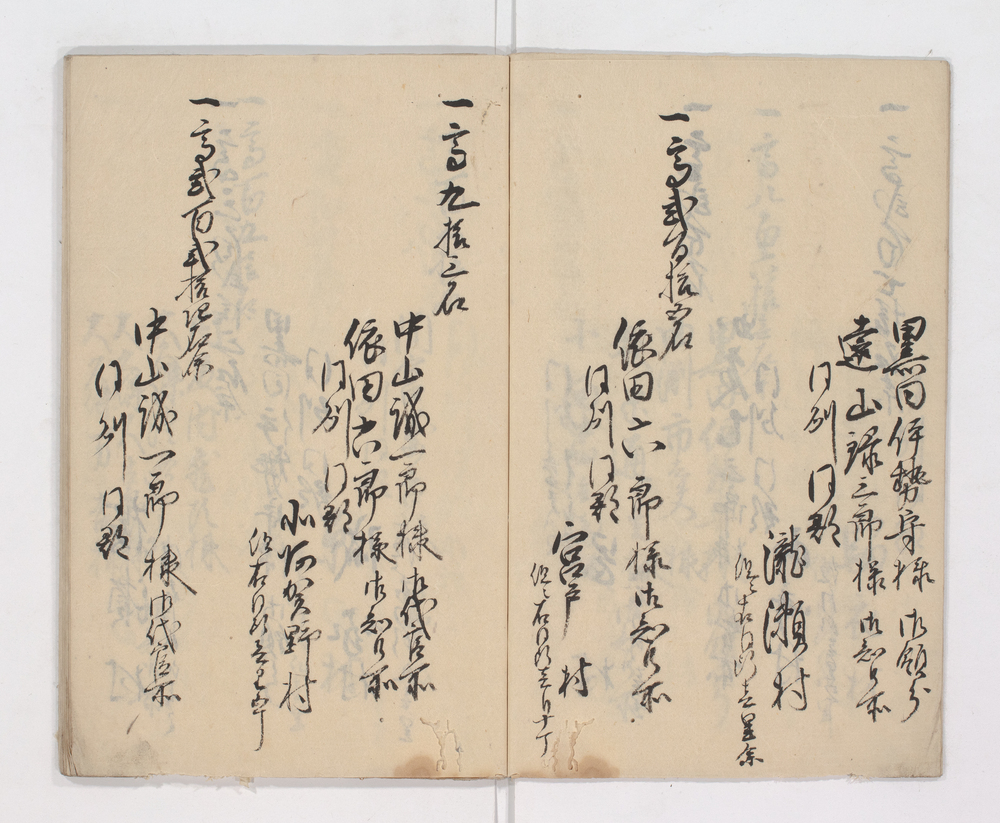 黒田伊勢守様御領分
遠山録三郎様御知行所
同州同郡
瀧瀬村
但右同断壱里余
一高弐百拾五石
依田六郎様御知行所
同州同郡
宮戸村
但右同断壱り十丁
一高九拾三石
中山誠一郎様御代官所
依田六郎様御知行所
同州同郡
小阿賀野村
但右同断壱里
一高弐百弐拾四石余
中山誠一郎様御代官所
同州同郡